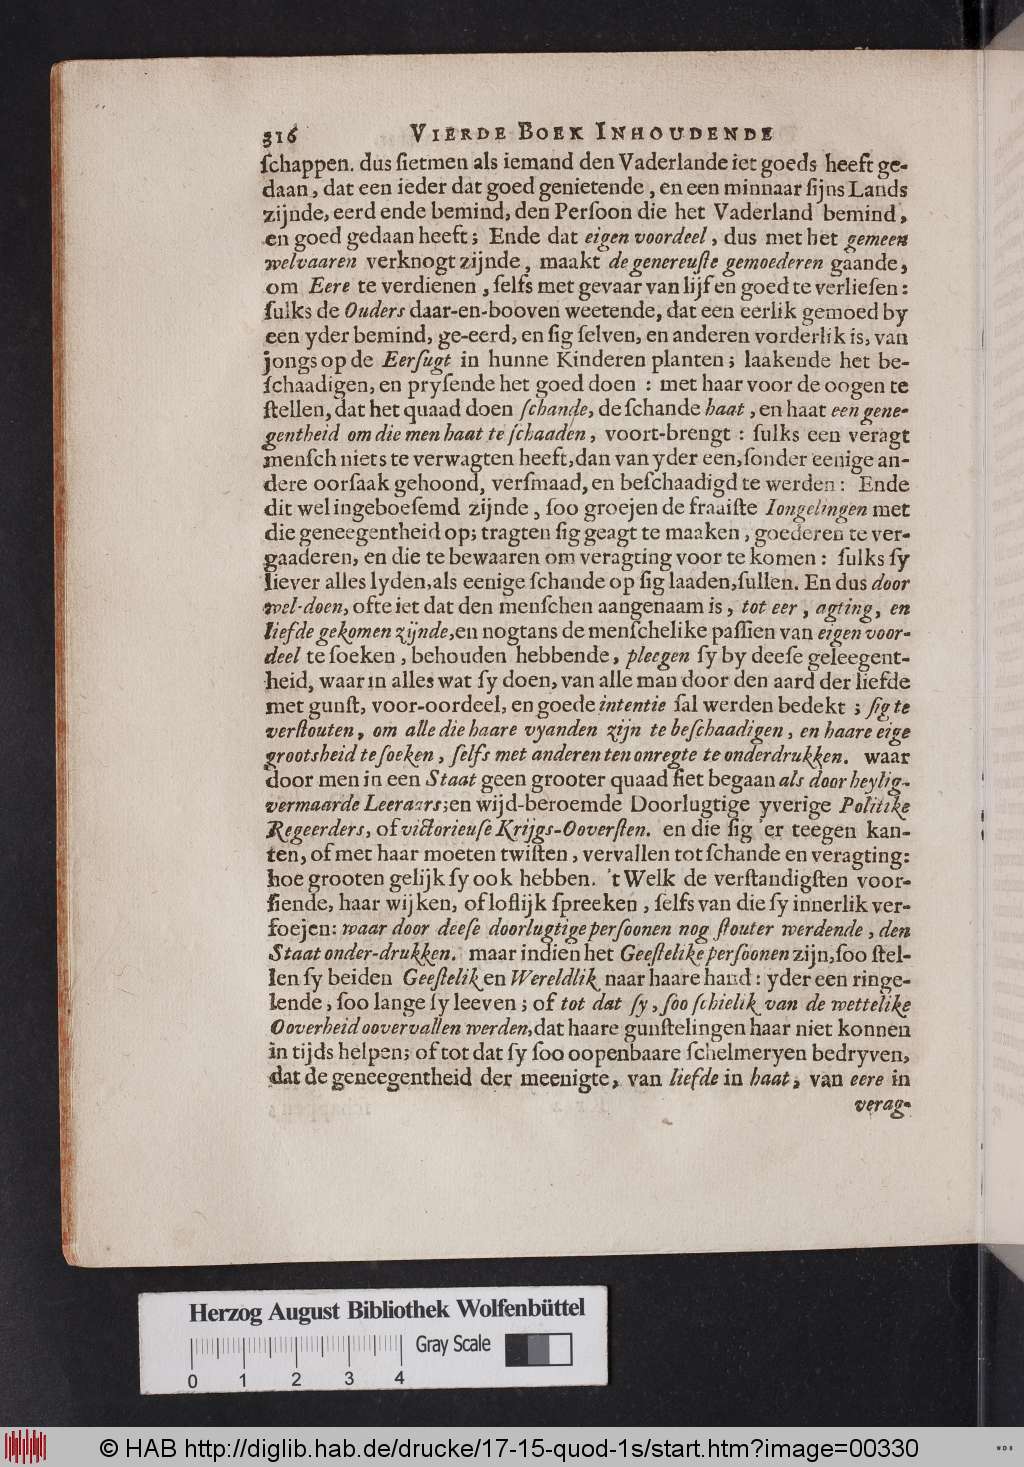 316 VIERDE BOEK INHOUDENDE
ſchappen. dus ſietmen als iemand den Vaderlande iet goeds heeft ge-
daan, dat een ieder dat goed genietende, en een minnaar ſijns Lands
zijnde, eerd ende bemind, den Perſoon die het Vaderland bemind,
en goed gedaan heeft; Ende dat eigen voordeel, dus met het gemeen
welvaaren verknogt zijnde, maakt de genereuſte gemoederen gaande,
om Eere te verdienen, ſelfs met gevaar van lijf en goed te verlieſen:
ſulks de Ouders daar-en-booven weetende, dat een eerlik gemoed by
een yder bemind, ge-eerd, en ſig ſelven, en anderen vorderlik is, van
jongs op de Eerſugt in hunne Kinderen planten; laakende het be-
ſchaadigen, en pryſende het goed doen : met haar voor de oogen te
ſtellen, dat het quaad doen ſchande, de ſchande haat, en haat een gene-
gentheid om die men haat te ſchaaden, voort-brengt : ſulks een veragt
menſch niets te verwagten heeft, dan van yder een, ſonder eenige an-
dere oorſaak gehoond, verſmaad, en beſchaadigd te werden: Ende
dit wel ingeboeſemd zijnde, ſoo groejen de fraaiſte Iongelingen met
die geneegentheid op; tragten ſig geagt te maaken, goederen te ver-
gaaderen, en die te bewaaren om veragting voor te komen : ſulks ſy
liever alles lyden, als eenige ſchande op ſig laaden, ſullen. En dus door
wel-doen, ofte iet dat den menſchen aangenaam is, tot eer, agting, en
liefde gekomen zijnde, en nogtans de menſchelike paſſien van eigen voor-
deel te ſoeken, behouden hebbende, pleegen ſy by deeſe geleegent-
heid, waar in alles wat ſy doen, van alle man door den aard der liefde
met gunſt, voor-oordeel, en goede intentie ſal werden bedekt ; ſig te
verſtouten, om alle die haare vyanden zijn te beſchaadigen, en haare eige
grootsheid te ſoeken, ſelfs met anderen ten onregte te onderdrukken. waar
door men in een Staat geen grooter quaad ſiet begaan als door heylig-
vermaarde Leeraars; en wijd-beroemde Doorlugtige yverige Politike
Regeerders, of victorieuſe Krijgs-Ooverſten. en die ſig 'er teegen kan-
ten, of met haar moeten twiſten, vervallen tot ſchande en veragting:
hoe grooten gelijk ſy ook hebben. 't Welk de verſtandigſten voor-
ſiende, haar wijken, of loflijk ſpreeken, ſelfs van die ſy innerlik ver-
foejen: waar door deeſe doorlugtige perſoonen nog ſtouter werdende, den
Staat onder-drukken. maar indien het Geeſtelike perſoonen zijn, ſoo ſtel-
len ſy beiden Geeſtelik en Wereldlik naar haare hand : yder een ringe-
lende, ſoo lange ſy leeven ; of tot dat ſy, ſoo ſchielik van de wettelike
Ooverheid oovervallen werden, dat haare gunſtelingen haar niet konnen
in tijds helpen; of tot dat ſy ſoo oopenbaare ſchelmeryen bedryven,
dat de geneegentheid der meenigte, van liefde in haat, van eere in
verag-
Herzog August Bibliothek Wolfenbüttel
Gray Scale
0 1 2 3 4
© HAB http://diglib.hab.de/drucke/17-15-quod-1s/start.htm?image=00330